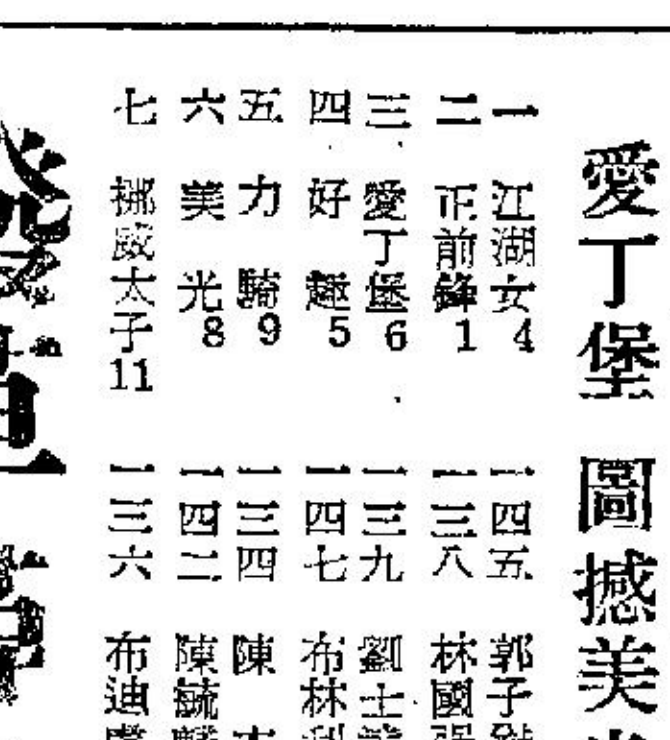 愛丁堡 圖撼美
一 江湖女4 一四五 郭子
二 正前鋒1 一三八 林國強
三 愛丁堡6 一三九 劉士
四 好趣5 一四七 布林利
五 力騎9 一三四 陳
六 美光8 一四二 陳毓麟
七 挪威太子11 一三六 布迪